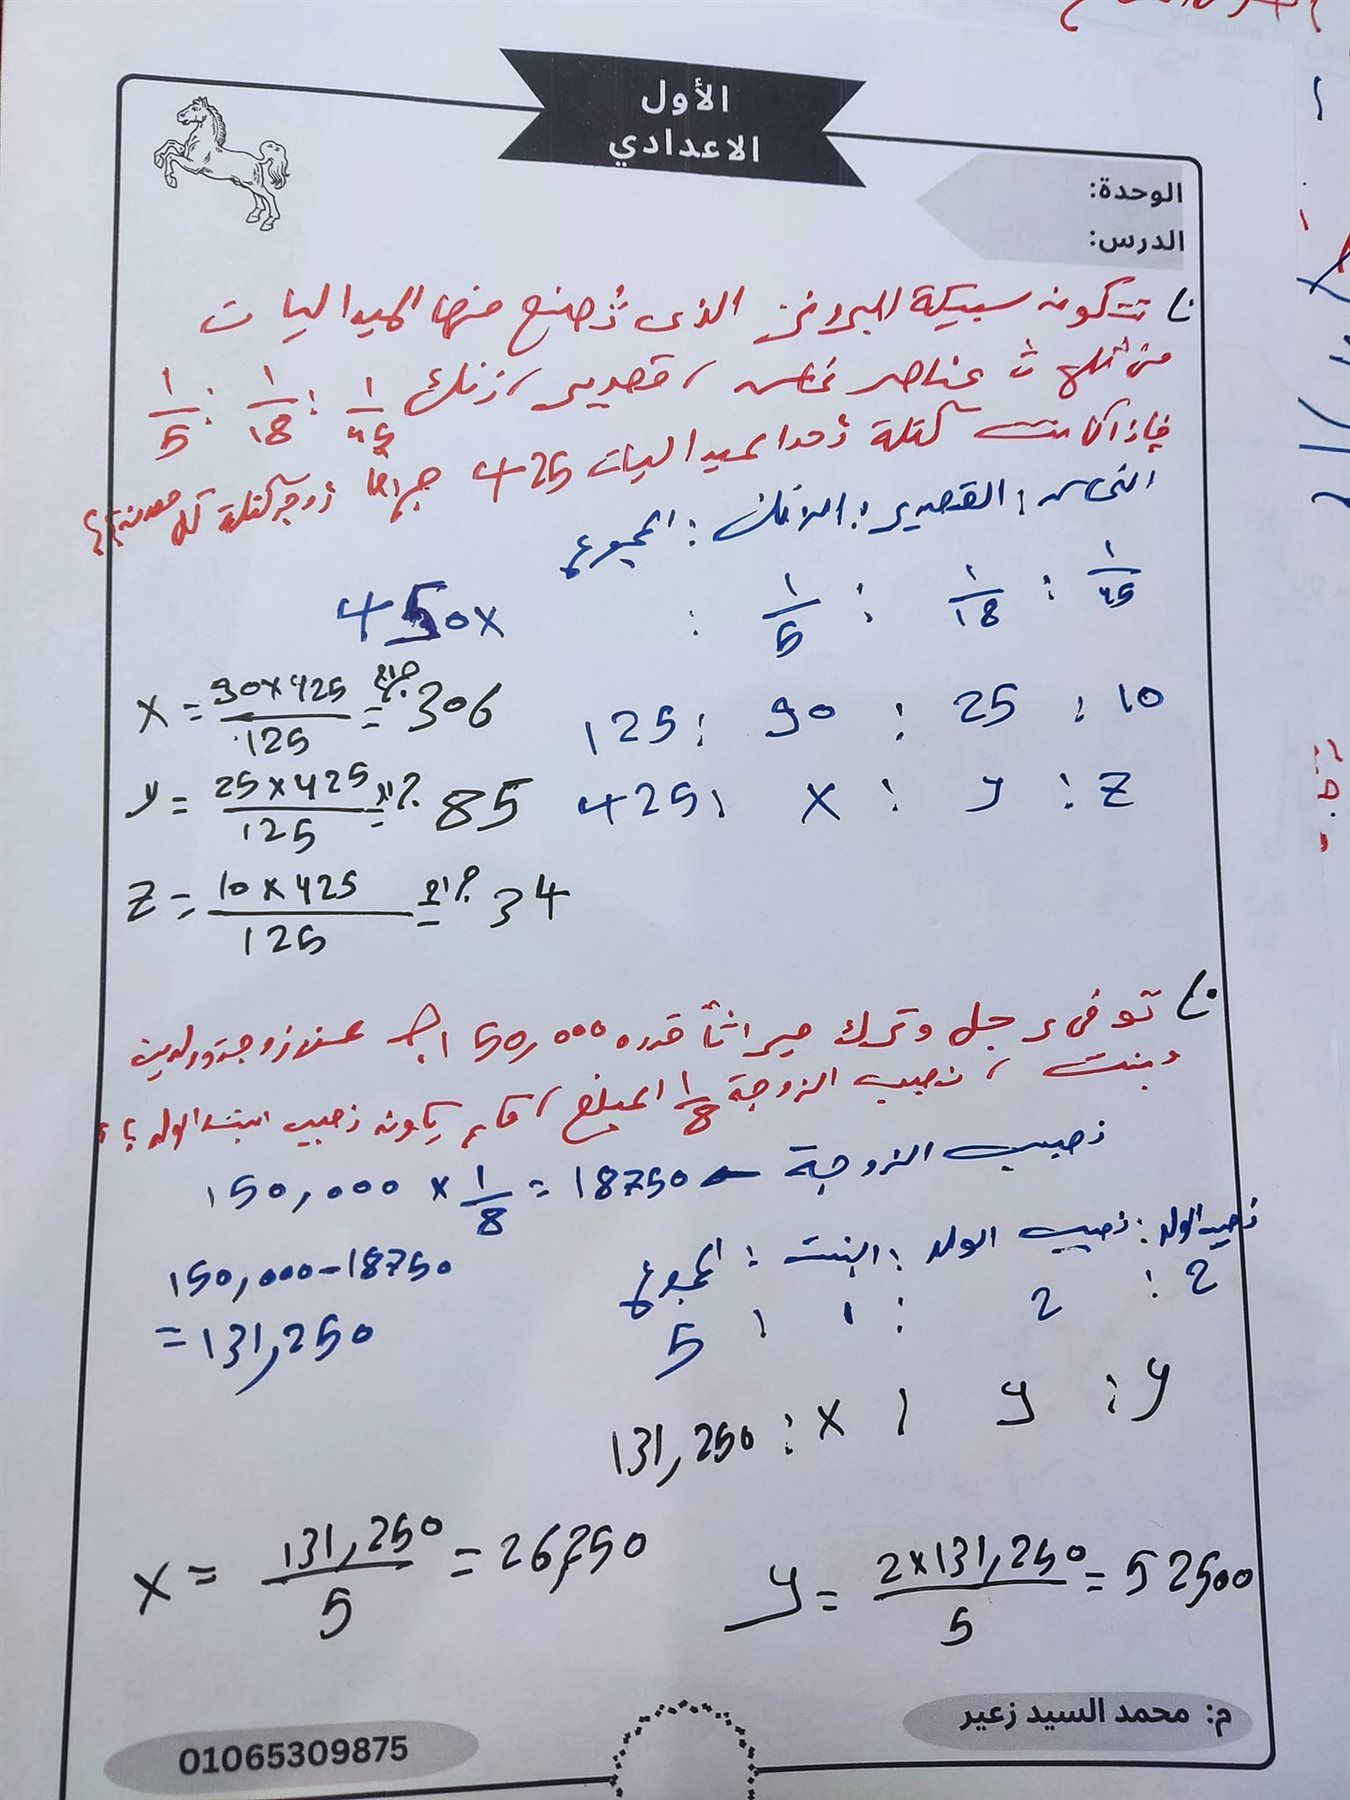 الأول
الاعدادي
الوحدة:
الدرس:
تتكون سبيكة البرونز الذى تُصنع منها الميداليات
من ثلاث عناصر نحاس، قصدير، زنك 1/45 : 1/18 : 1/5
فإذا كانت كتلة أحدا ميداليات 425 جراما أوجد كتلة كل معدن؟؟
النحاس : القصدير : الزنك : المجموع
1/45 : 1/18 : 1/5 : 450x
10 : 25 : 90 : 125
Z : y : x : 425
x = 90×425/125 = 306 جرام
y = 25×425/125 = 85 جرام
Z = 10×425/125 = 34 جرام
توفى رجل وترك ميراثاً قدره 150,000 جـ عن زوجة وولدين
وبنت، نصيب الزوجة 1/8 المبلغ، فكم يكون نصيب البنت والولد؟؟
نصيب الزوجة
150,000 × 1/8 = 18750
نصيب الولد : نصيب الولد : البنت : المجموع
2 : 2 : 1 : 5
150,000-18750
= 131,250
y : y : x : 131,250
x = 131,250/5 = 26,250
y = 2×131,250/5 = 52500
م: محمد السيد زعير
01065309875